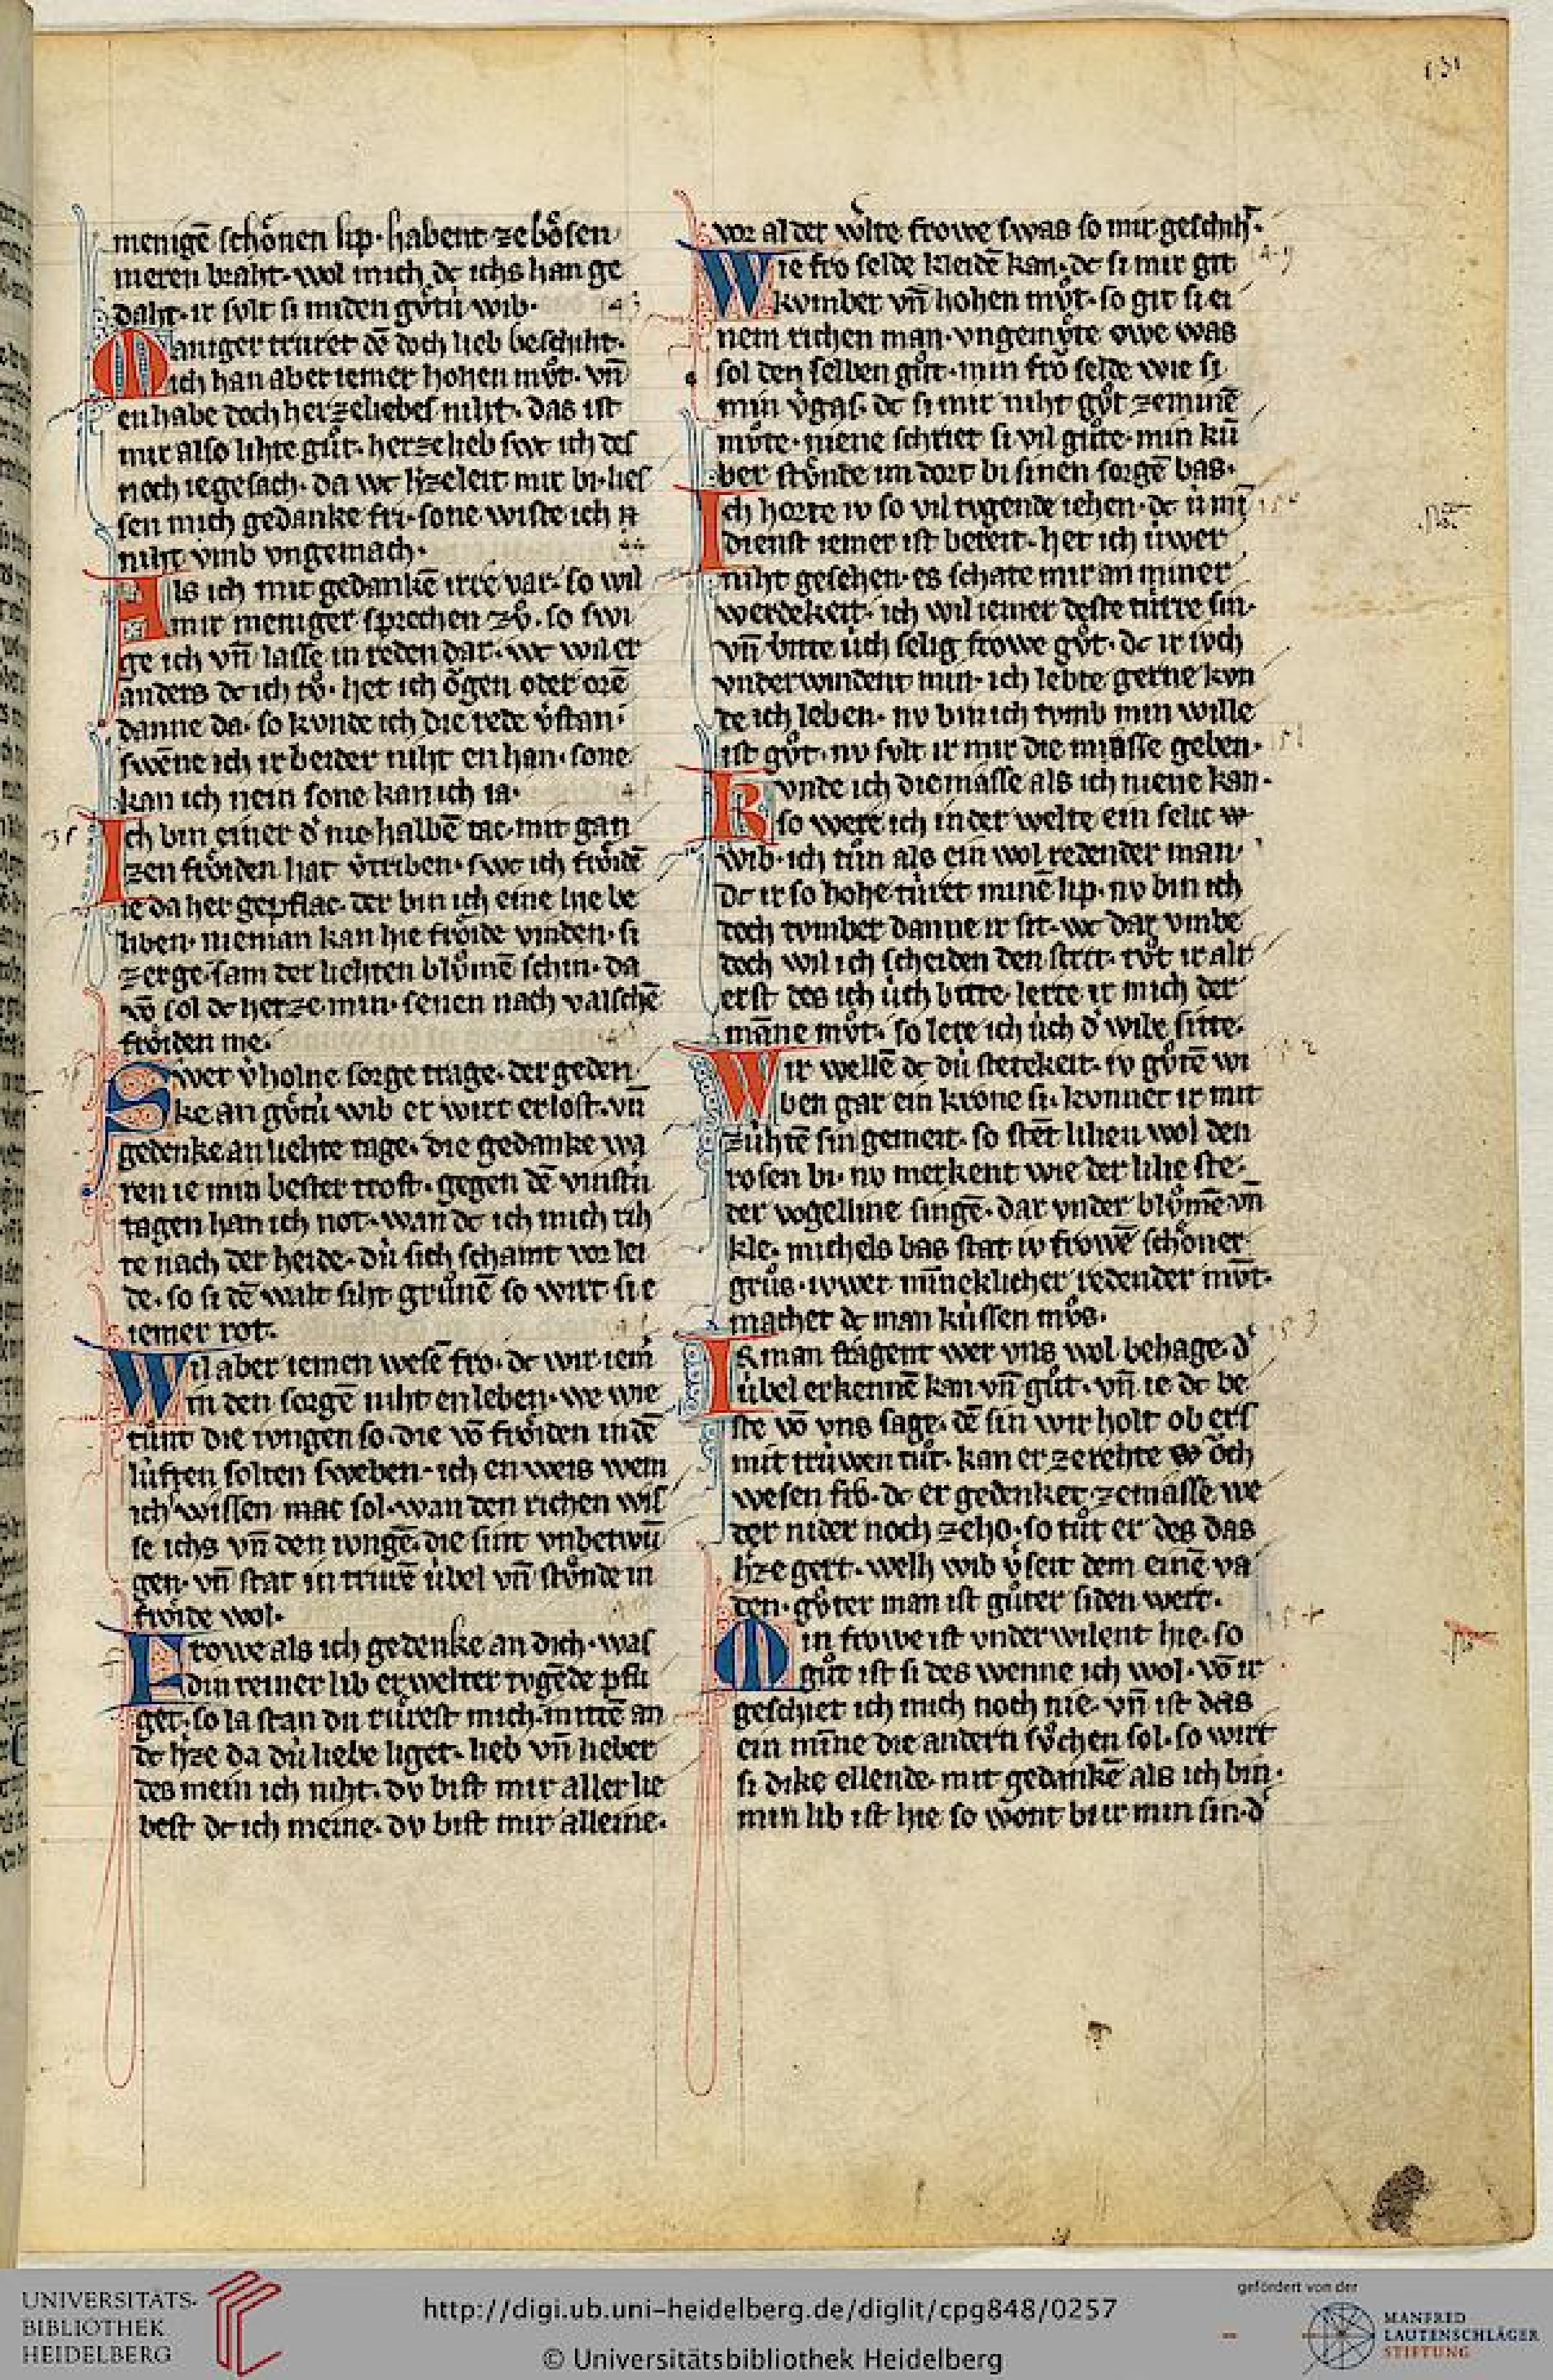 131
menigē schönen lip· habent ze bösen
meren braht· wol mich dc ichs han ge
daht· ir sult si miden gůtú wib·
Maniger truret dē doch lieb beschiht·
ich han aber iemer hohen můt· vn̄
en habe doch herzeliebes niht· das ist
mir also lihte gůt· herzelieb swc ich des
noch ie gesach· da wc h'zeleit mir bi· lies
sen mich gedanke fri· sone wiste ich
niht vmb vngemach·
Als ich mit gedankē irre var· so wil
mir meniger sprechen zů· so swi
ge ich vn̄ lasse in reden dar· wc wil er
anders dc ich tů· het ich ǒgen oder orē
danne da· so konde ich die rede v'stan·
swēne ich ir beider niht en han· sone
kan ich nein sone kan ich ia·
Ich bin einer d' nie halbē tac· mit gan
zen fröiden hat v'triben· swc ich fröidē
ie da her gepflac· der bin ich eine hie be
liben· nieman kan hie fröide vinden· si
zerge· sam der liehten blůmē schin· da
vō sol dc herze min· senen nach valschē
fröiden me·
Swer v'holne sorge trage· der geden
ke an gůtú wib er wirt erlost· vn̄
gedenke an liehte tage· die gedanke wa
ren ie min bester trost· gegen dē vinstn̄
tagen han ich not· wan dc ich mich rih
te nach der heide· dú sich schamt vor lei
de· so si dē walt siht grůnē so wirt si e
iemer rot·
Wil aber iemen wesē fro· dc wir iem̄
in den sorgē niht en leben· we wie
tůnt die ivngen so· die vō fröiden in dē
lúften solten sweben· ich en weis wem
ich wissen mac sol· wan den richen wis
se ichs vn̄ den ivngē· die sint vnbetwū
gen· vn̄ stat in trurē úbel vn̄ stůnde in
fröide wol·
Frowe als ich gedenke an dich· was
din reiner lib erwelter tvgēde pfli
get· so la stan du růrest mich· mittē an
dc h'ze da dú liebe liget· lieb vn̄ lieber
des mein ich niht· dv bist mir aller lie
best dc ich meine· dv bist mir alleine·
vor al der welte frowe swas so mir geschih'·
Wie fro selde kleidē kan· dc si mir git
kvmber vn̄ hohen můt· so git si ei
nem richen man· vngemůte owe was
sol den selben gůt· min frǒ selde wie si
min v'gas· dc si mir niht gůt ze minē
můte· niene schriet si vil gůte· min kū
ber stůnde im dort bi sinen sorgē bas·
Ich horte iv so vil tvgende iehen· dc ú mī
dienst iemer ist bereit· het ich úwer
niht gesehen· es schate mir an miner
werdekeit· ich wil iemer deste túrre sin·
vn̄ bitte úch selig frowe gůt· dc ir ivch
vnderwindent min· ich lebte gerne kvn
de ich leben· nv bin ich tvmb min wille
ist gůt· nv sult ir mir die masse geben·
Kvnde ich die masse als ich niene kan·
so were ich in der welte ein selic
wib· ich tůn als ein wol redender man·
dc ir so hohe túret minē lip· nv bin ich
doch tvmber danne ir sit· wc dar vmbe
doch wil ich scheiden den strit· tůt ir alr
erst des ich úch bitte· lerte ir mich der
māne můt· so lere ich úch d' wibe sitte·
Wir wellē dc dú stetekeit· iv gůtē wi
ben gar ein krone si· kvnnet ir mit
zúhtē sin gemeit· so stēt lilien wol den
rosen bi· nv merkent wie der lilie ste·
der vogelline singē· dar vnder blůmē vn̄
kle· michels bas stat iv frowē schöner
grůs· iwer mineklicher redender mv̄t·
machet dc man kússen můs·
Is man fragent wer vns wol behage· d'
úbel erkennē kan vn̄ gůt· vn̄ ie dc be
ste vō vns sage· dē sin wir holt ob ers
mit trúwen tůt· kan er ze rehte ǒch
wesen frǒ· dc er gedenket· ze masse we
der nider noch ze ho· so tůt er des das
h'ze gert· welh wib v'seit dem einē va
den· gůter man ist gůter siden wert·
Min frowe ist vnderwilent hie· so
gůt ist si des wenne ich wol· vō ir
geschiet ich mich noch nie· vn̄ ist das
ein mīne die andern sůchen sol· so wirt
si dike ellende· mit gedankē als ich bin·
min lib ist hie so wont bi ir min sin· d'
UNIVERSITÄTS-
BIBLIOTHEK
HEIDELBERG
http://digi.ub.uni-heidelberg.de/diglit/cpg848/0257
© Universitätsbibliothek Heidelberg
gefördert von der
MANFRED
LAUTENSCHLÄGER
STIFTUNG